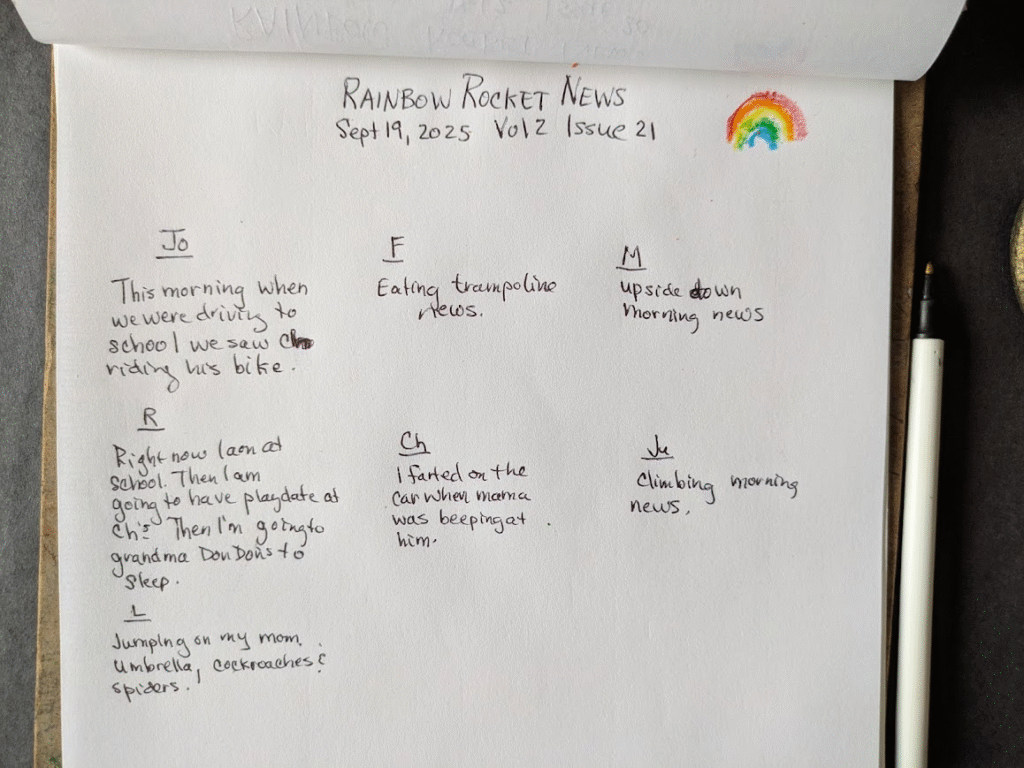 RAINBOW ROCKET NEWS
Sept 19, 2025 Vol 2 Issue 21
Jo
This morning when
we were driving to
school we saw Ch
riding his bike.
F
Eating trampoline
news.
M
upside down
morning news
R
Right now I am at
school. Then I am
going to have playdate at
Ch's Then I'm going to
grandma DonDon's to
sleep.
Ch
I farted on the
car when mama
was beeping at
him.
Ju
Climbing morning
news.
L
Jumping on my mom.
Umbrella, cockroaches &
spiders.